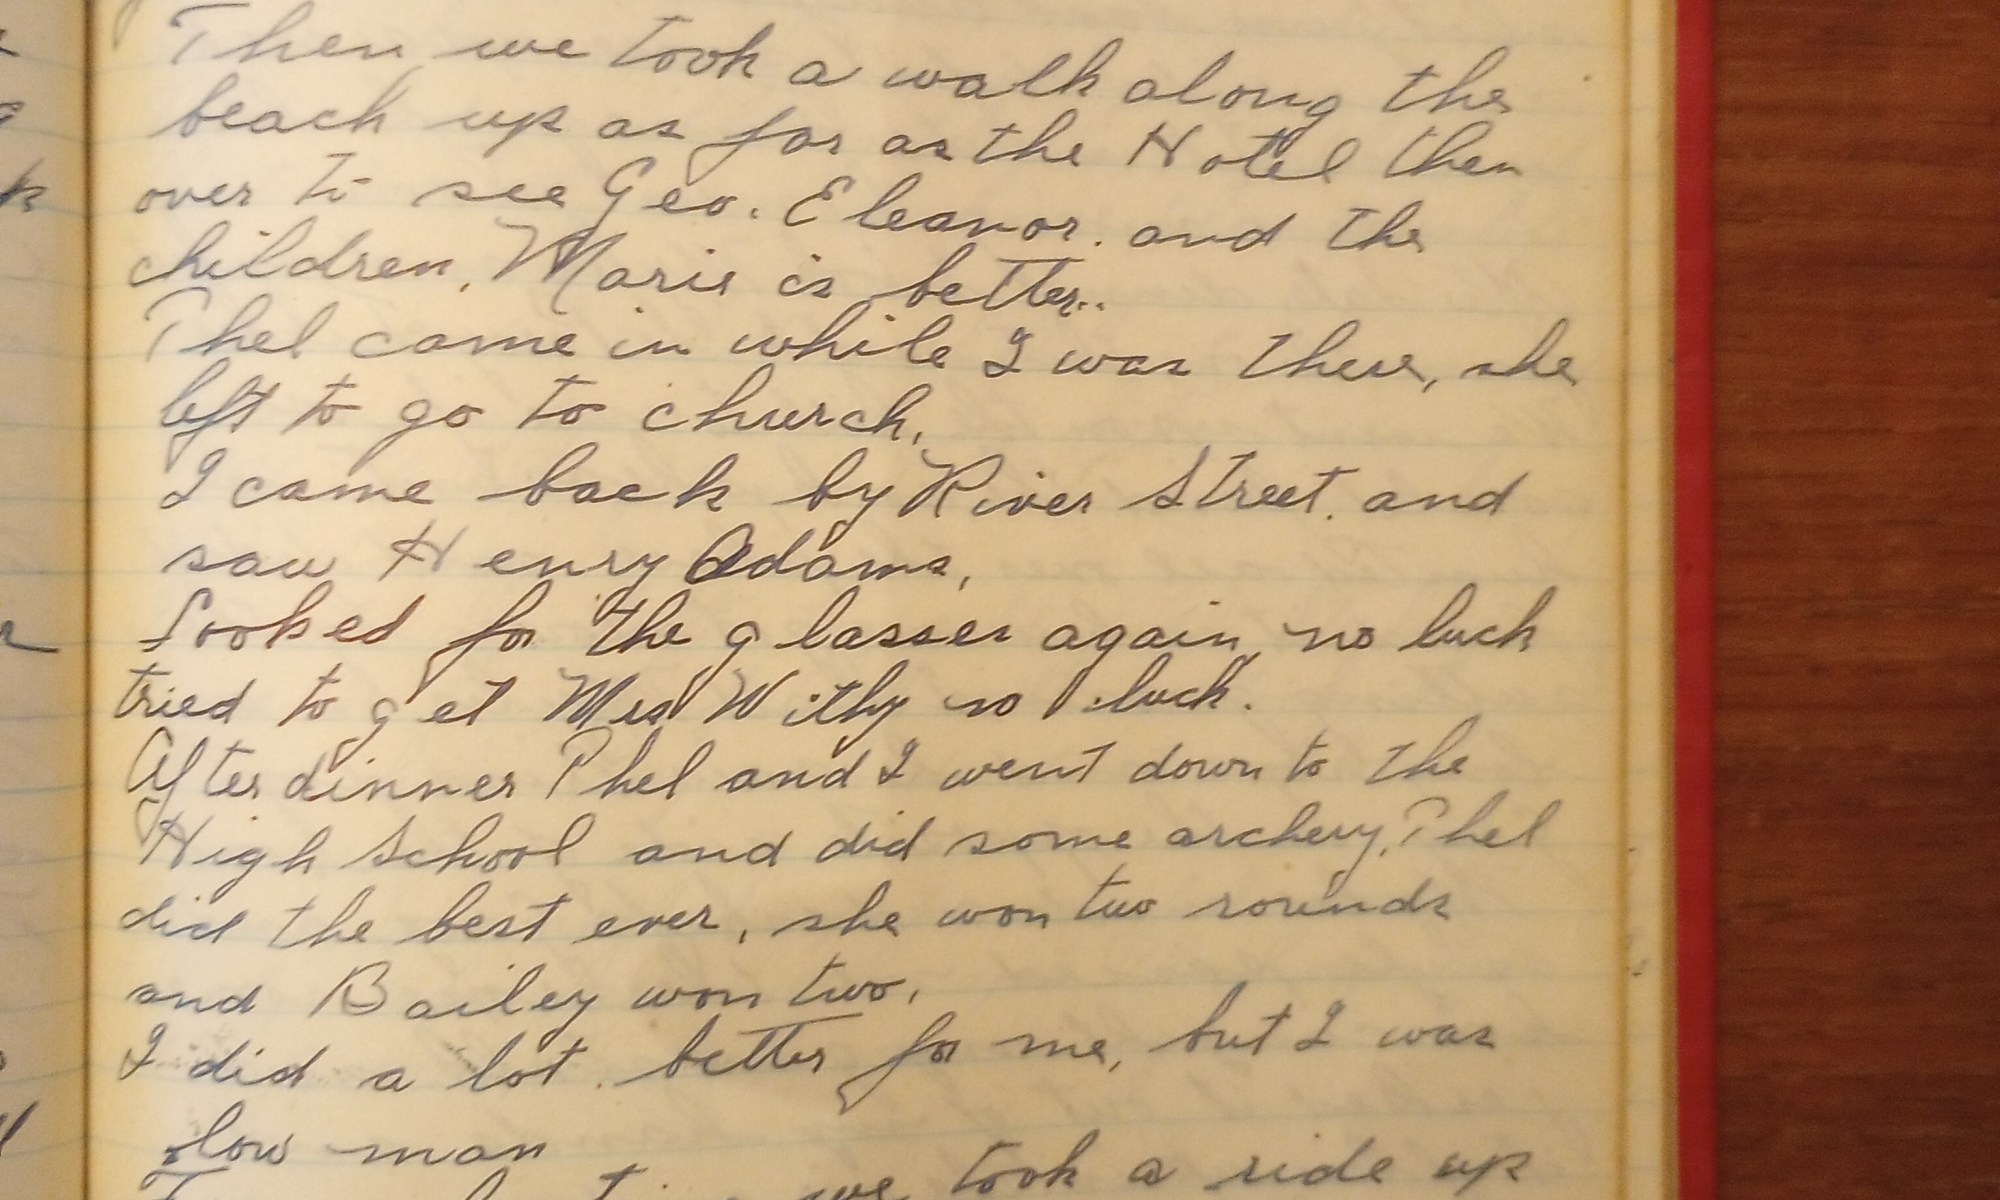 Then we took a walk along the
beach up as far as the Hotel then
over to see Geo. Eleanor. and the
children. Marie is better..
Phel came in while I was there, she
left to go to church.
I came back by River Street. and
saw Henry Adams,
Looked for the glasses again, no luck
tried to get Mrs Withy no luck.
After dinner Phel and I went down to the
High School and did some archery. Phel
did the best ever, she won two rounds
and Bailey won two.
I did a lot. better for me, but I was
low man
we took a ride up